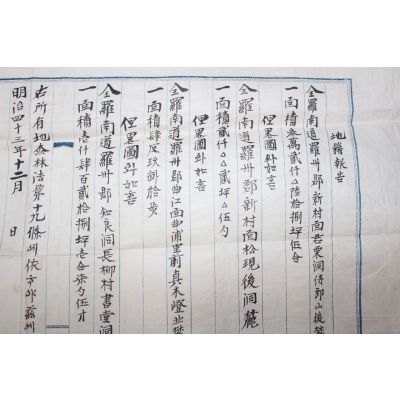 地籍報告
全羅南道羅州郡新村面君栗洞侍郎山後麓
一面積叁萬貳仟△△陸拾捌坪伍合
但畧圖외如喜
全羅南道羅州郡新村面松現後洞麓
一面積貳仟△△貳坪△伍勺
但畧圖외如喜
全羅南道羅州郡曲江面曲浦里前真木燈
一面積肆反玖畝拾步
但畧圖외如喜
全羅南道羅州郡知良洞長柳村書堂洞
一面積壱仟肆百貳拾捌坪壱合柒勺伍才
右所有地森林法第十九條 依
明治四十三年十二月 日